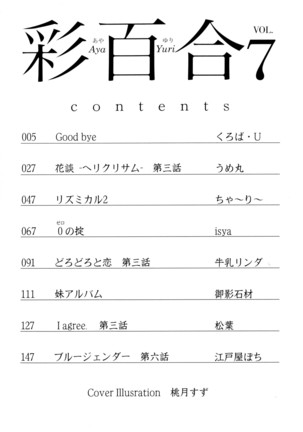 彩百合 VOL. 7
あや ゆり
Aya Yuri
contents
005 Good bye くろば・U
027 花談 -ヘリクリサム- 第三話 うめ丸
047 リズミカル2 ちゃ～り～
zero
067 0の掟 isya
091 どろどろと恋 第三話 牛乳リンダ
111 妹アルバム 御影石材
127 I agree. 第三話 松葉
147 ブルージェンダー 第六話 江戸屋ぽち
Cover Illusration 桃月すず